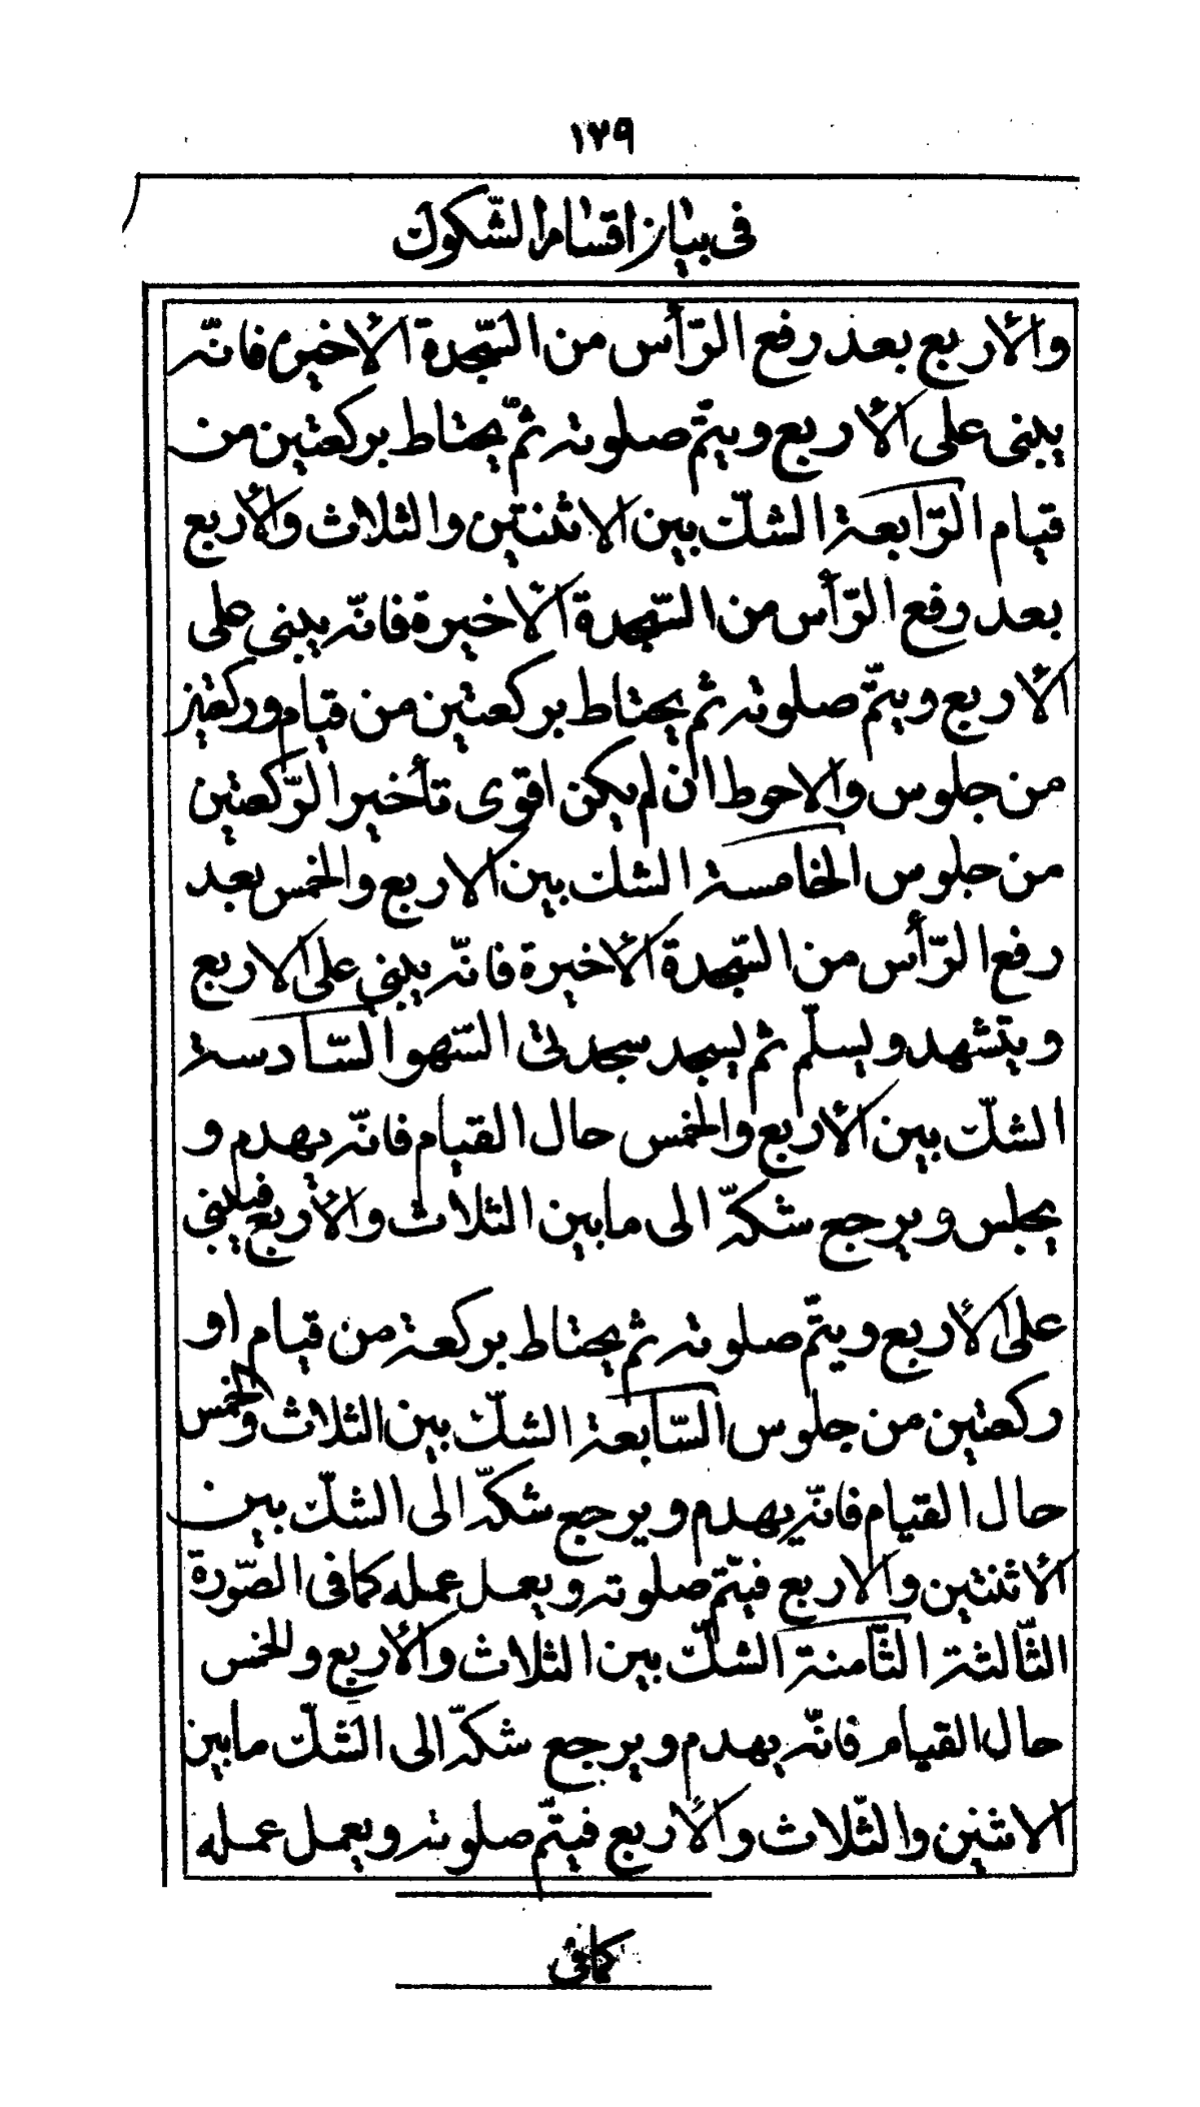 ١٢٩
فى بيان اقسام الشّكوك
والأربع بعد رفع الرّأس من السّجدة الأخيرة فانّه
يبنى على الأربع ويتمّ صلوته ثمّ يحتاط بركعتين من
قيام الرّابعة الشكّ بين الاثنتين والثلاث والأربع
بعد رفع الرّأس من السّجدة الأخيرة فانّه يبنى على
الأربع ويتمّ صلوته ثم يحتاط بركعتين من قيام وركعتين
من جلوس والاحوط ان لم يكن اقوى تأخير الرّكعتين
من جلوس الخامسة الشك بين الاربع والخمس بعد
رفع الرّأس من السّجدة الأخيرة فانّه يبنى على الاربع
ويتشهد ويسلّم ثم يسجد سجدتى السّهو السّادسة
الشكّ بين الأربع والخمس حال القيام فانّه يهدم و
يجلس ويرجع شكّه الى ما بين الثلاث والأربع فيبنى
على الأربع ويتمّ صلوته ثم يحتاط بركعة من قيام او
ركعتين من جلوس السّابعة الشكّ بين الثلاث والخمس
حال القيام فانّه يهدم ويرجع شكّه الى الشكّ بين
الأثنتين والاربع فيتمّ صلوته ويعمل عمله كما فى الصّورة
الثّالثة الثّامنة الشكّ بين الثلاث والأربع والخمس
حال القيام فانّه يهدم ويرجع شكّه الى الشّكّ ما بين
الاثنين والثّلاث والأربع فيتمّ صلوته ويعمل عمله
كما فى